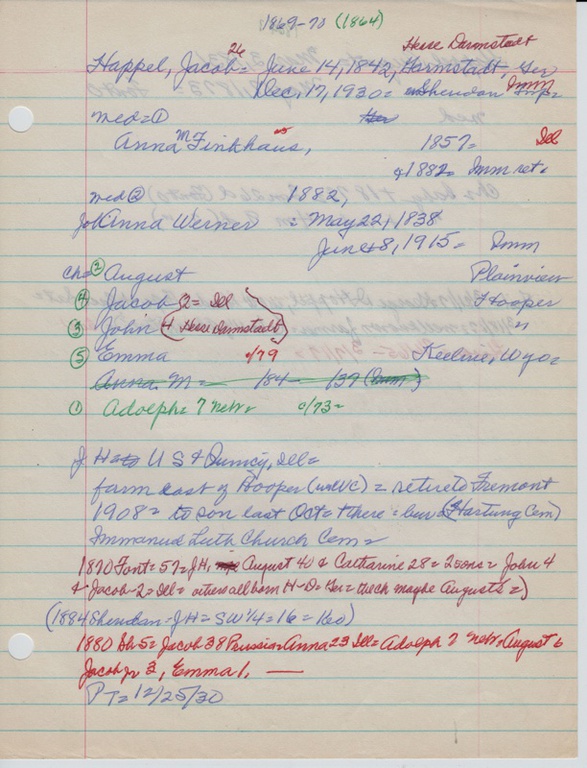 1869-70 (1864)
26 Hesse Darmstadt
Happel, Jacob = June 14, 1842, Harmstadt, Ger
Dec, 17, 1930 = Sheridan Imm
med = ①
Anna M Finkhaus, 1857 = Ill
& 1882 = Imm ret =
med ② 1882,
Anna Werner = May 22, 1838
June 8, 1915 = Imm
ch = ② August Plainview
④ Jacob 2 = Ill Hooper
③ John 4 (Hesse Darmstadt)
⑤ Emma c/79 Keeline, Wyo =
Anna M = 184 - 139 (Imm)
① Adolph = 7 nebr = c/73 =
J H = to US & Quincy, Ill =
farm east of Hooper (with C) = retire to Fremont
1908 = to son last Oct = there = bur = (Hartung Cem)
Immanuel Luth Church Cem =
1870 Font = 57 = JH, August 40 & Catharine 28 = 2 sons = John 4
& Jacob - 2 = Ill = others all born H-D = Ger = maybe Augusts =)
(1884 Sheridan - JH = SW 1/4 = 16 = 160)
1880 Sh 5 = Jacob 38 Prussia = Anna 23 Ill = Adolph 7 nebr = August 6
Jacob Jr 3, Emma 1,
PT = 12/25/30